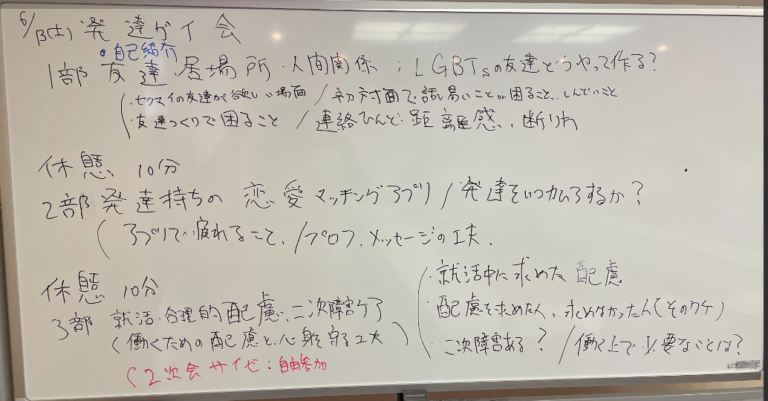 6/13(土) 発達ゲイ会
・自己紹介
1部 友達・居場所・人間関係；LGBTsの友達どうやって作る？
(・セクマイの友達が欲しい場面 / 初対面で話し易いこと。困ること、しんどいこと
・友達づくりで困ること / 連絡ひんど・距離感、断り方
休憩 10分
2部 発達持ちの恋愛マッチングアプリ / 発達をいつカムアするか？
(アプリで疲れること、/ プロフ、メッセージの工夫、
休憩 10分
3部 就活・合理的配慮、二次障害ケア
(働くための配慮と、心身を守る工夫)
(2次会サイゼ：自由参加
・就活中に求めた配慮
・配慮を求めた人、求めなかった人(そのワケ)
・二次障害ある？ / 働く上で必要なことは？